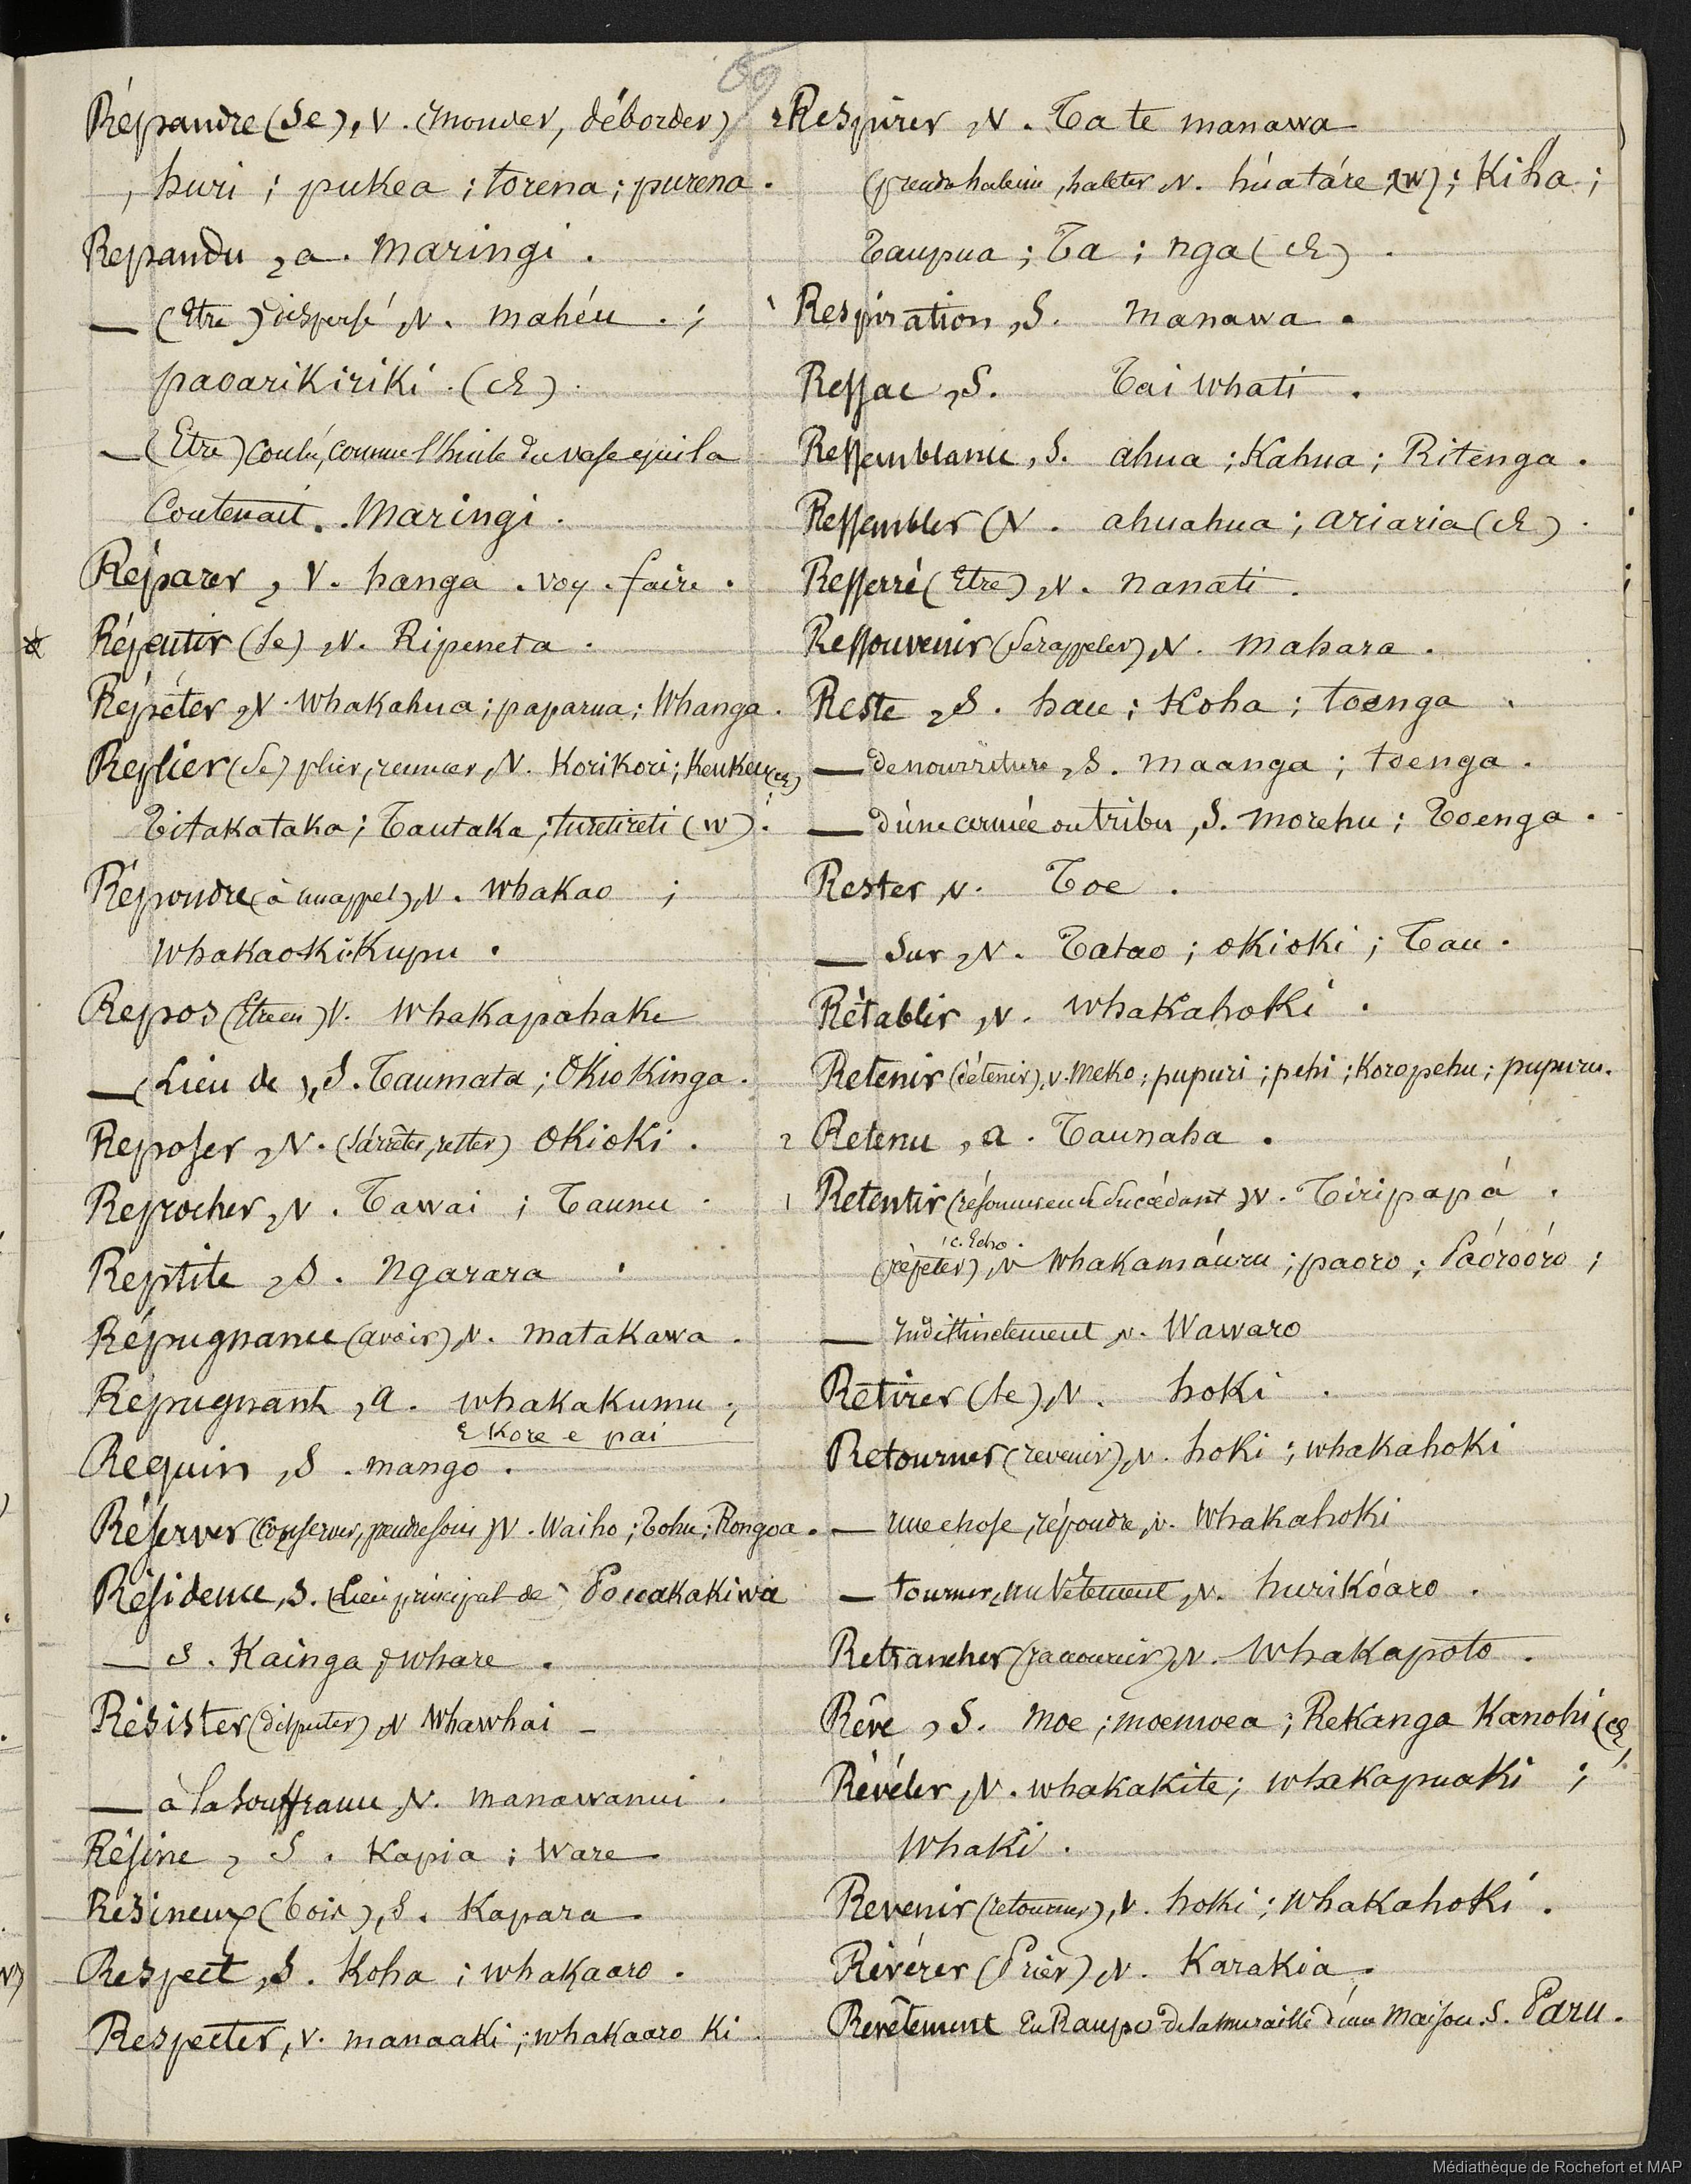 69
Répandre (Se), V. (Inonder, déborder)
, huri ; pukea ; torena ; purena.
Repandu, a. maringi.
— (Etre) dispersé, V. mahéu. ;
paoarikiriki. (ch).
— (Etre) coulé, comme l'huile du vase qui la
Contenait. Maringi.
Réparer, V. hanga. voy. faire.
Répentir (Se), V. Ripeneta.
Répéter, V. Whakahua ; paparua ; Whanga.
Replier (Se) plier, remuer, V. Korikori ; Keukeu (ch)
Titakataka ; Tautaka ; turetireti (w).
Répondre (à un appel), V. Whakao ;
Whakaoki Kupu.
Repos (Etre en) V. Whakapahake
— (Lieu de), S. Taumata ; Okiokinga.
Reposer, V. (S'arrêter, rester) Okioki.
Reprocher, V. Tawai ; Taunu.
Reptile, S. Ngarara.
Répugnance (avoir), V. matakawa.
Répugnant, a. whakakumu ;
E kore e pai
Requin, S. mango.
Réserver (Conserver, prendre soin) V. Waiho ; Tohu ; Rongoa.
Résidence, S. (Lieu principal de) Pouakakiwa
— S. Kainga ; whare.
Résister (disputer), V Whawhai —
— à la Souffrance, V. manawanui.
Résine, S. Kapia ; Ware
Résineux (bois), S. Kapara.
Respect, S. Koha ; whakaaro.
Respecter, V. manaaki ; whakaaro ki.
2 Respirer, V. Ta te manawa
(prendre haleine, haleter, V. húatáre (w) ; Kiha ;
Taupua ; Ta ; nga (ch).
Respiration, S. Manawa.
Ressac, S. Tai Whati.
Ressemblance, S. ahua ; Kahua ; Ritenga.
Ressembler (V. ahuahua ; ariaria (ch).
Resserré (Etre), V. nanati.
Ressouvenir (Se rappeler), V. mahara.
Reste, S. hau ; Koha ; toenga.
— de nourriture, S. maanga ; toenga.
— d'une armée ou tribu, S. morehu ; Toenga.
Rester, V. Toe.
— Sur, V. Tatao ; okioki ; Tau.
Rétablir, V. Whakahoki.
Retenir (détenir), V. Meko ; pupuri ; pehi ; Koropehu ; pupuru.
2 Retenu, a. Taunaha.
1 Retentir (résonner en se succédant) V. Tiripapá.
, c. Echo.
(répéter), V Whakamáuru ; paoro ; Páoróóro ;
— Indistinctement, V. Wawaro
Retirer (Se), V. hoki.
Retourner (revenir), V. hoki ; whakahoki
— une chose, répondre, V. Whakahoki
— tourner, un Vêtement, V. hurikóaro.
Retrancher (raccourcir), V. Whakapoto.
Rêve, S. Moe ; moemoea ; Rekanga Kanohi (ch).
Révéler, V. whakakite ; whakapuaki ;
Whaki.
Revenir (retourner), V. hoki ; whakahoki.
Révérer (Prier), V. Karakia.
Revêtement En Raupo de la muraille d'une Maison. S. Paru.
Médiathèque de Rochefort et MAP